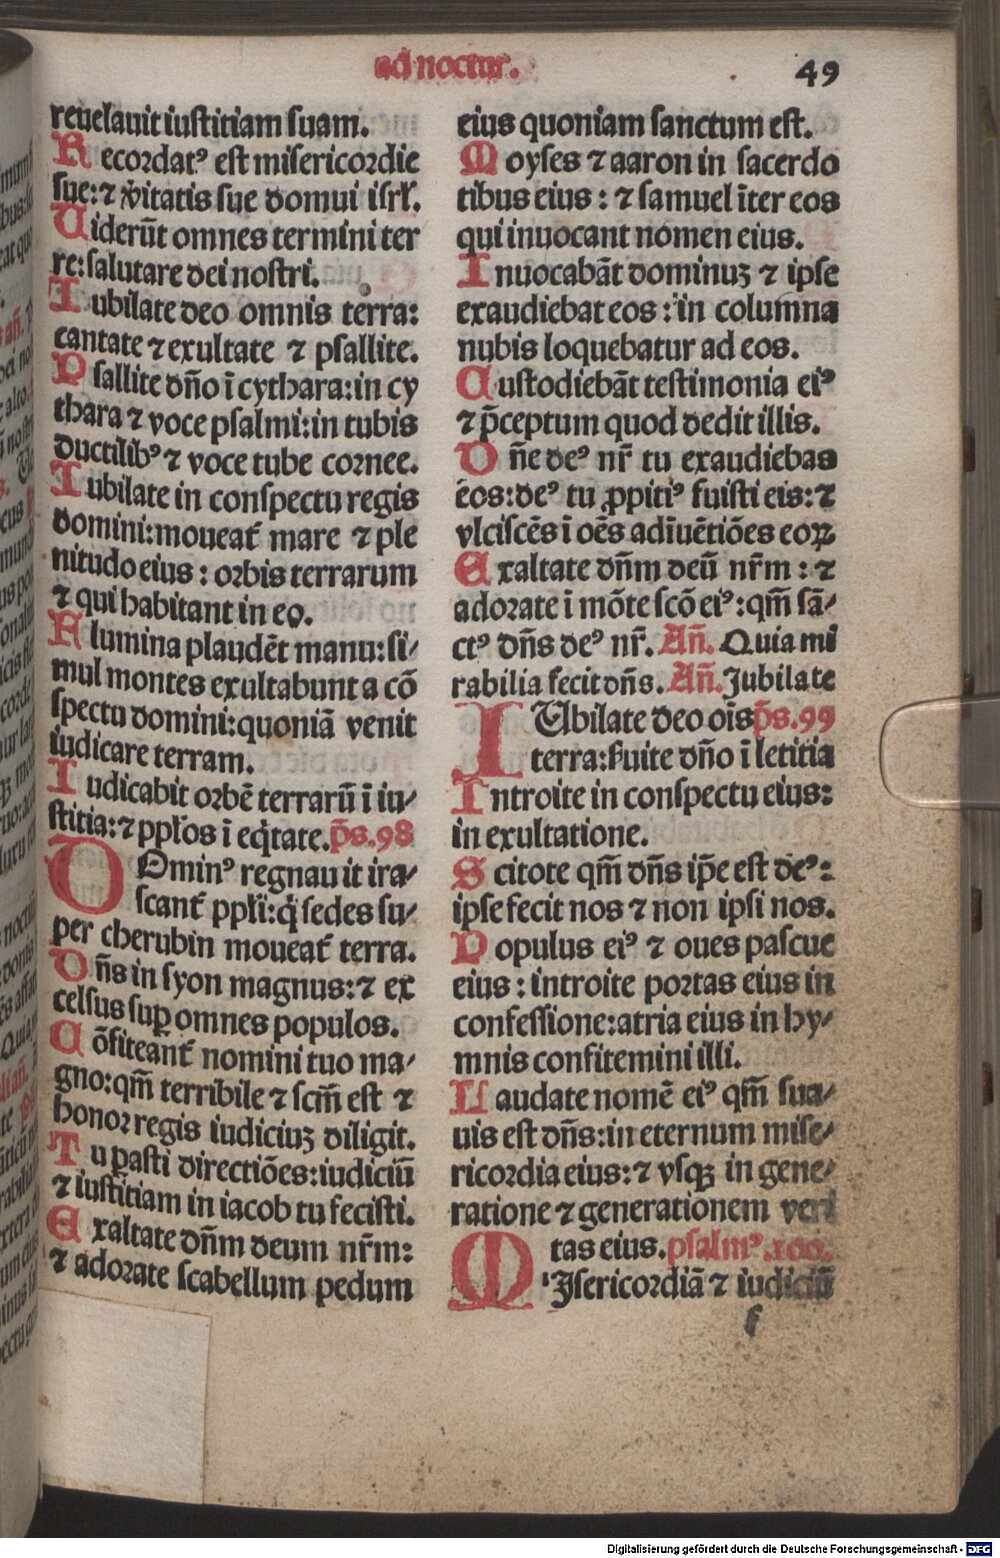 ad noctur.
49
reuelauit iustitiam suam.
Recordatꝰ est misericordie
sue: ⁊ v̓itatis sue domui isrl̓.
Uiderūt omnes termini ter
re: salutare dei nostri.
Iubilate deo omnis terra:
cantate ⁊ exultate ⁊ psallite.
Psallite dn̄o ī cythara: in cy
thara ⁊ voce psalmi: in tubis
ductilibꝰ ⁊ voce tube cornee.
Iubilate in conspectu regis
domini: moueat᷑ mare ⁊ ple
nitudo eius: orbis terrarum
⁊ qui habitant in eo.
Flumina plaudēt manu: si⸗
mul montes exultabunt a cō
spectu domini: quoniā venit
iudicare terram.
Iudicabit orbē terrarū ī iu⸗
stitia: ⁊ ppl̓os ī eq̇tate. p̄s. 98
DOminꝰ regnauit ira⸗
scant᷑ ppl̓i: q̇ sedes su⸗
per cherubin moueat᷑ terra.
Dn̄s in syon magnus: ⁊ ex
celsus suꝑ omnes populos.
Cōfiteant᷑ nomini tuo ma⸗
gno: qm̄ terribile ⁊ scm̄ est ⁊
honor regis iudiciuꝫ diligit.
Tu ꝑasti directiōes: iudiciū
⁊ iustitiam in iacob tu fecisti.
Exaltate dn̄m deum nr̄m:
⁊ adorate scabellum pedum
eius quoniam sanctum est.
Moyses ⁊ aaron in sacerdo
tibus eius: ⁊ samuel īter eos
qui inuocant nomen eius.
Inuocabāt dominuꝫ ⁊ ipse
exaudiebat eos: in columna
nubis loquebatur ad eos.
Custodiebāt testimonia eiꝰ
⁊ p̄ceptum quod dedit illis.
Dn̄e deꝰ nr̄ tu exaudiebas
eos: deꝰ tu ꝓpitiꝰ fuisti eis: ⁊
vlciscēs ī oēs adīuētiōes eoꝝ
Exaltate dn̄m deū nr̄m: ⁊
adorate ī mōte scō eiꝰ: qm̄ sā⸗
ctꝰ dn̄s deꝰ nr̄. Añ. Quia mi
rabilia fecit dn̄s. Añ. Jubilate
IUbilate deo oīs p̄s. 99
terra: ẜuite dn̄o ī letitia
Introite in conspectu eius:
in exultatione.
Scitote qm̄ dn̄s ip̄e est deꝰ:
ipse fecit nos ⁊ non ipsi nos.
Populus eiꝰ ⁊ oues pascue
eius: introite portas eius in
confessione: atria eius in hy⸗
mnis confitemini illi.
Laudate nomē eiꝰ qm̄ sua⸗
uis est dn̄s: in eternum mise⸗
ricordia eius: ⁊ vsqꝫ in gene⸗
ratione ⁊ generationem veri
tas eius. psalmꝰ. 100.
MIsericordiā ⁊ iudiciū
f
Digitalisierung gefördert durch die Deutsche Forschungsgemeinschaft - DFG